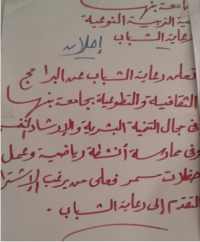 جامعة بنها
كلية التربية النوعية
رعاية الشباب
إعلان
تعلن رعاية الشباب عن البرامج
الثقافية والتطوعية بجامعة بنها
فى مجال التنمية البشرية والإرشاد النفسى
وفى ممارسة أنشطة رياضية وعمل
حفلات سمر فعلى من يرغب الإشتراك
التقدم إلى رعاية الشباب .